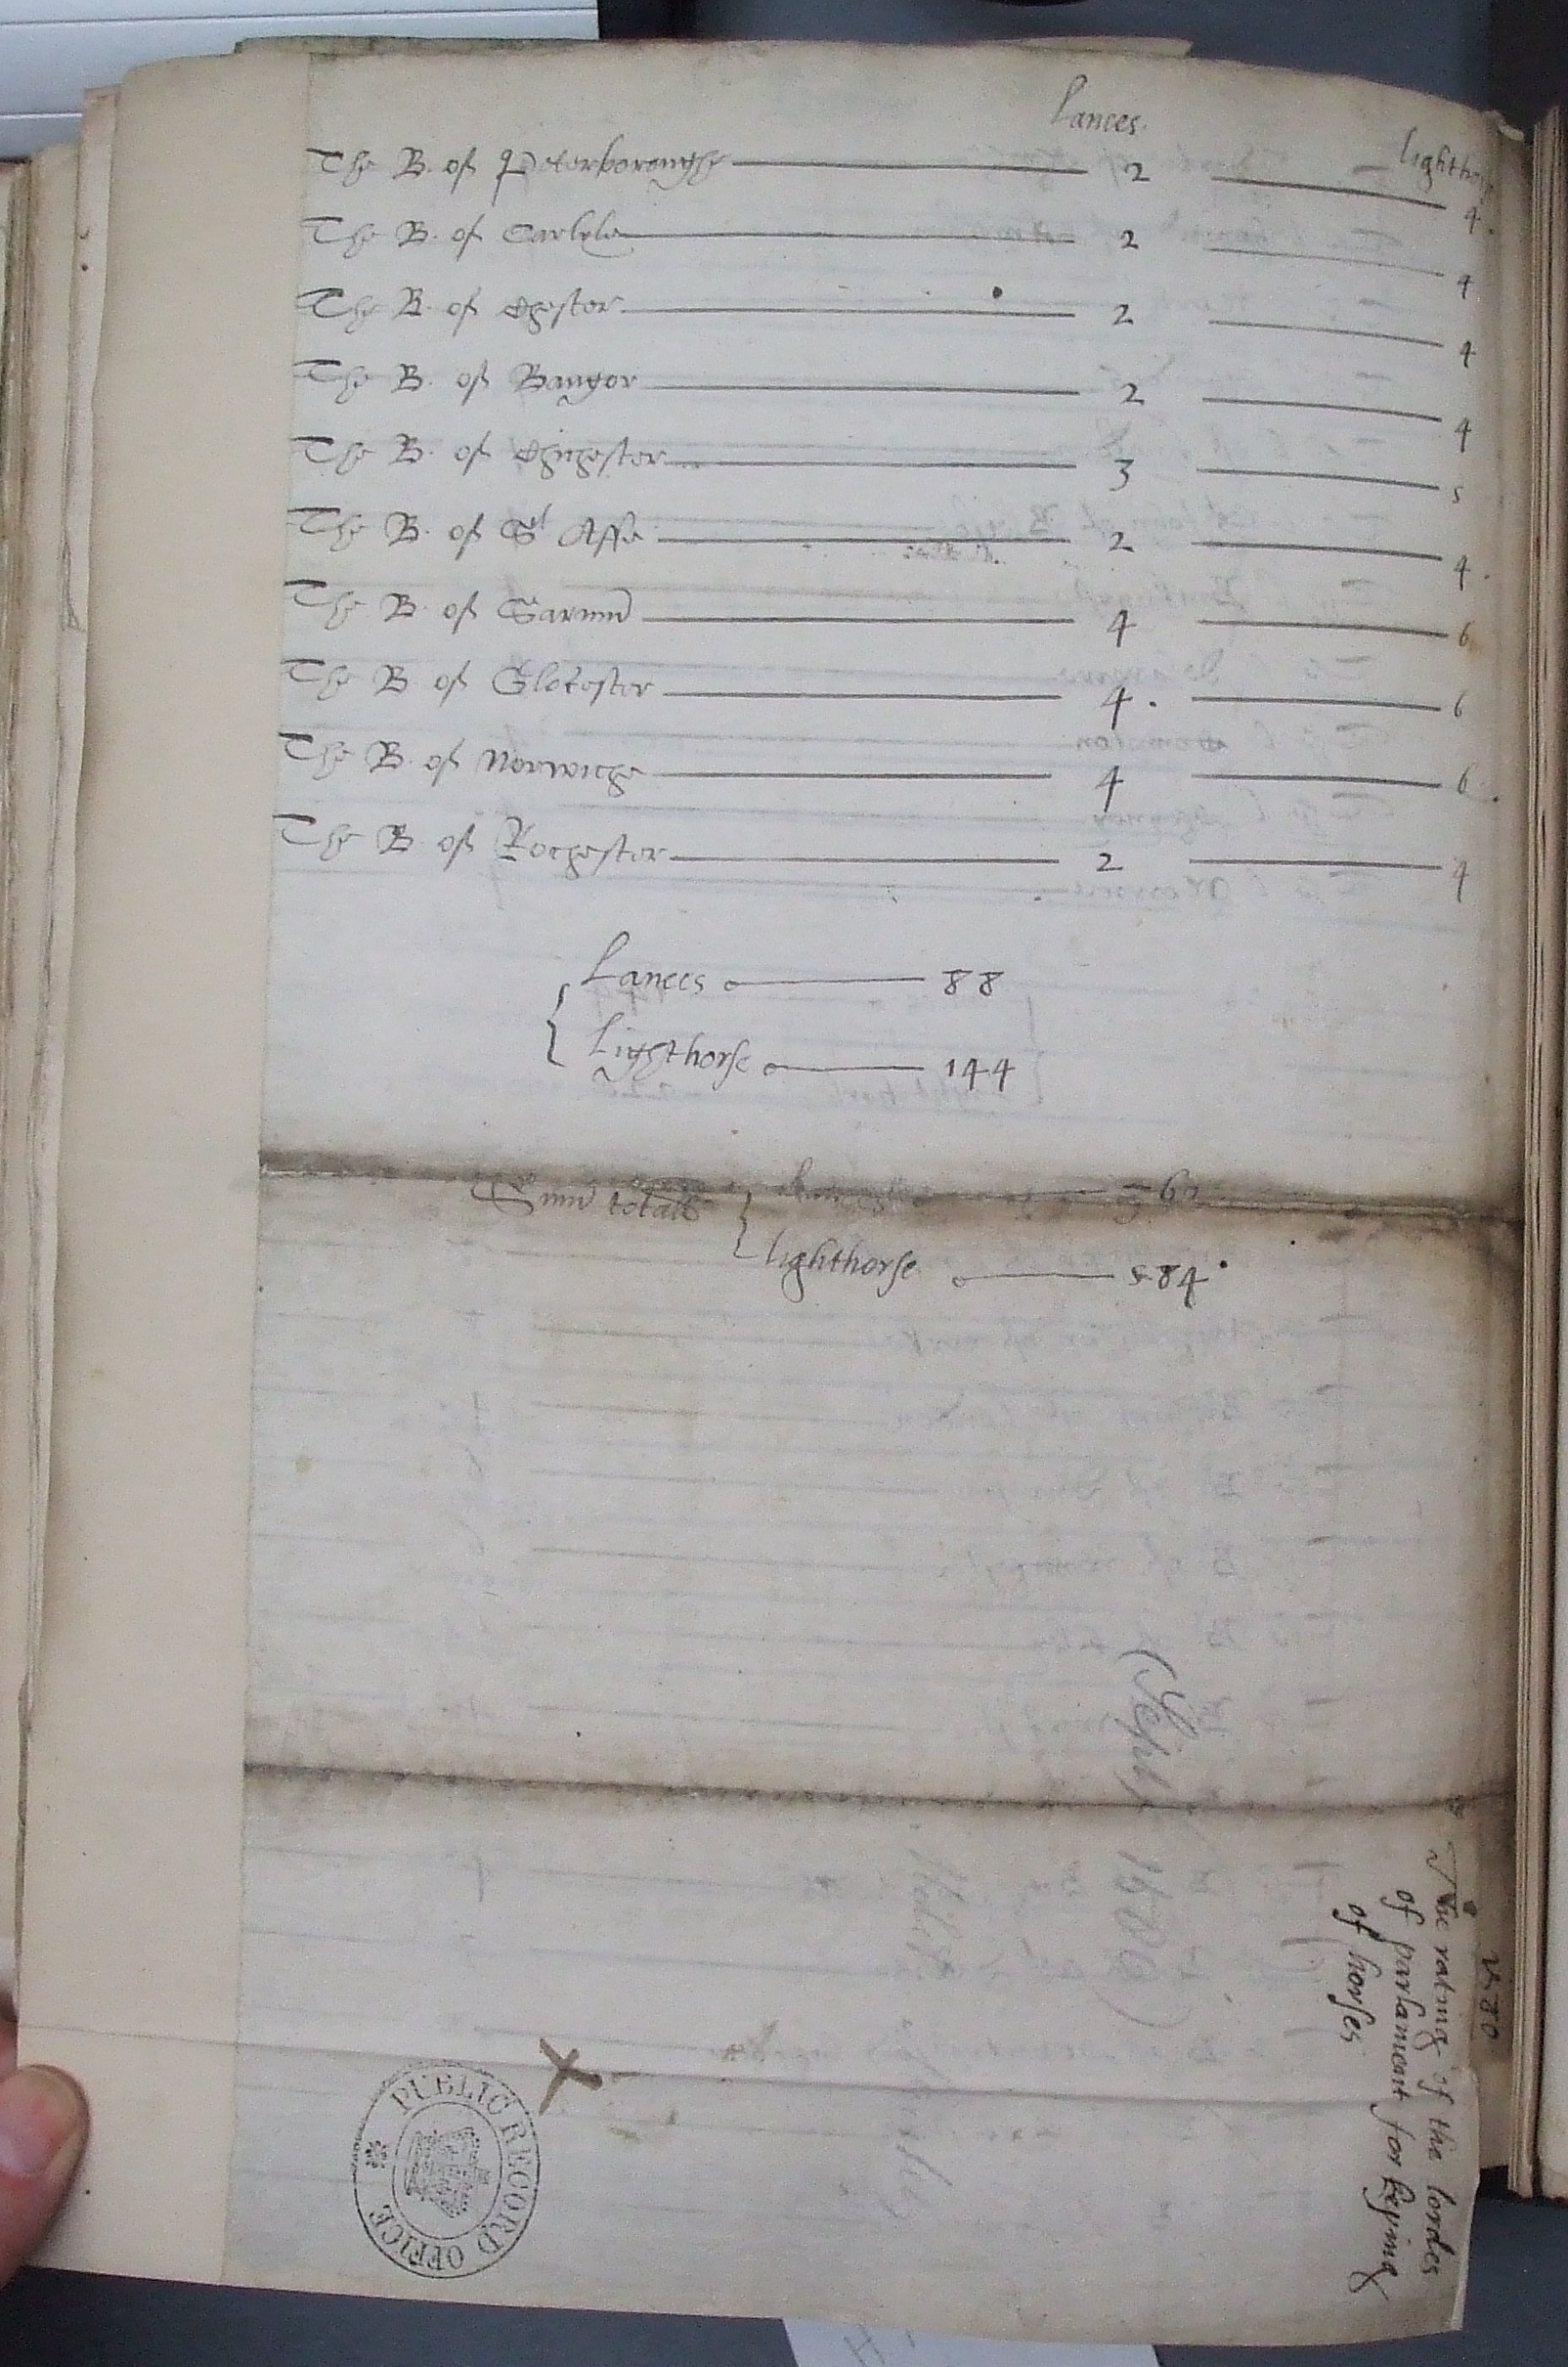 Lances. lighthorse
The B. of Peterboroughe 2 4.
The B. of Carlyle 2 4
The B. of Chester 2 4
The B. of Bangor 2 4
The B. of Chichester 3 5
The B. of St Asse 2 4.
The B. of Sarum 4 6
The B. of Glocester 4. 6
The B. of Norwiche 4 6.
The B. of Rochester 2 4
Lances 88
Lighthorse 144
Sum totall 362
lighthorse 584
1580
The rating of the lordes
of parlament for
of horses
(Sept 1580)
PUBLIC RECORD OFFICE